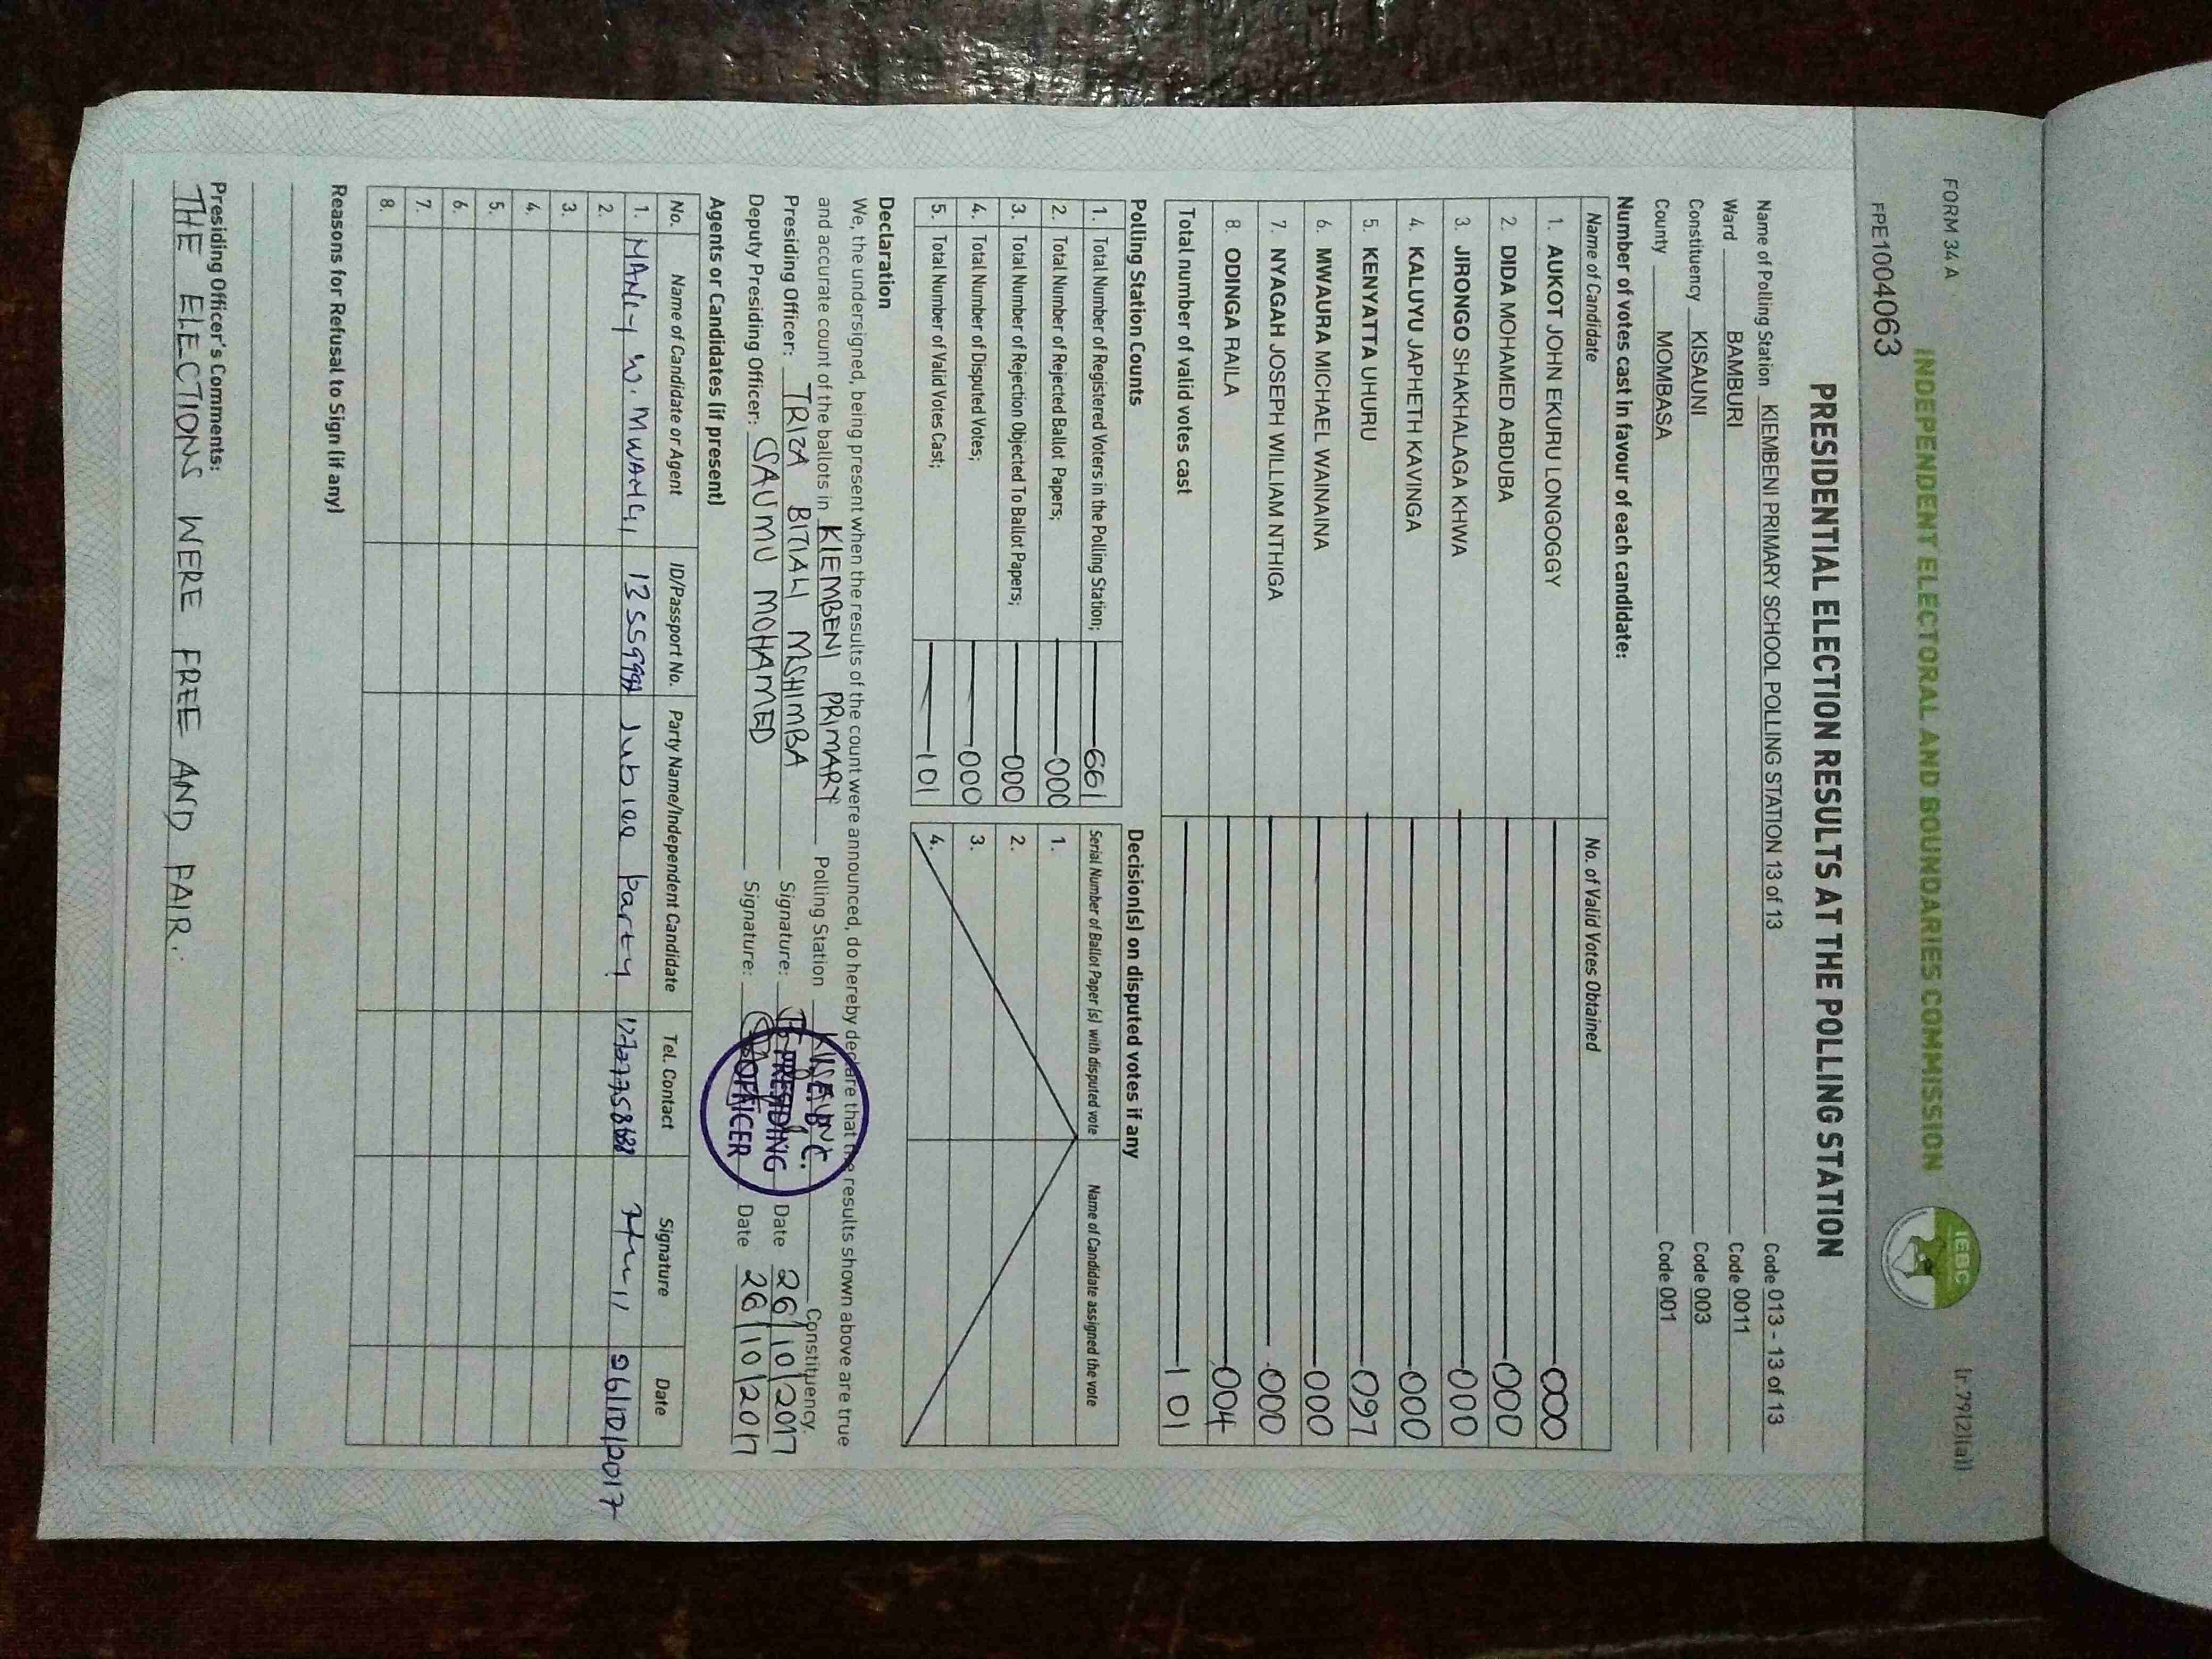 FORM 34 A
INDEPENDENT ELECTORAL AND BOUNDARIES COMMISSION
IEBC
(r.79(2)(a))
FPE1004063
PRESIDENTIAL ELECTION RESULTS AT THE POLLING STATION
Name of Polling Station KIEMBENI PRIMARY SCHOOL POLLING STATION 13 of 13 Code 013 - 13 of 13
Ward BAMBURI Code 0011
Constituency KISAUNI Code 003
County MOMBASA Code 001
Number of votes cast in favour of each candidate:
Name of Candidate No. of Valid Votes Obtained
1. AUKOT JOHN EKURU LONGOGGY 000
2. DIDA MOHAMED ABDUBA 000
3. JIRONGO SHAKHALAGA KHWA 000
4. KALUYU JAPHETH KAVINGA 000
5. KENYATTA UHURU 097
6. MWAURA MICHAEL WAINAINA 000
7. NYAGAH JOSEPH WILLIAM NTHIGA 000
8. ODINGA RAILA 004
Total number of valid votes cast 101
Polling Station Counts
1. Total Number of Registered Voters in the Polling Station; 661
2. Total Number of Rejected Ballot Papers; 000
3. Total Number of Rejection Objected To Ballot Papers; 000
4. Total Number of Disputed Votes; 000
5. Total Number of Valid Votes Cast; 101
Decision(s) on disputed votes if any
Serial Number of Ballot Paper (s) with disputed vote Name of Candidate assigned the vote
1.
2.
3.
4.
Declaration
We, the undersigned, being present when the results of the count were announced, do hereby declare that the results shown above are true
and accurate count of the ballots in KIEMBENI PRIMARY Polling Station KISAUNI Constituency.
Presiding Officer: TRIZA BITIAH MSHIMBA Signature: Date 26/10/2017
Deputy Presiding Officer: SAUMU MOHAMED Signature: Date 26/10/2017
PRESIDING
OFFICER
Agents or Candidates (if present)
No. Name of Candidate or Agent ID/Passport No. Party Name/Independent Candidate Tel. Contact Signature Date
1. W. MWANGI Jubilee Party 26/10/2017
2.
3.
4.
5.
6.
7.
8.
Reasons for Refusal to Sign (if any)
Presiding Officer's Comments:
THE ELECTIONS WERE FREE AND FAIR.